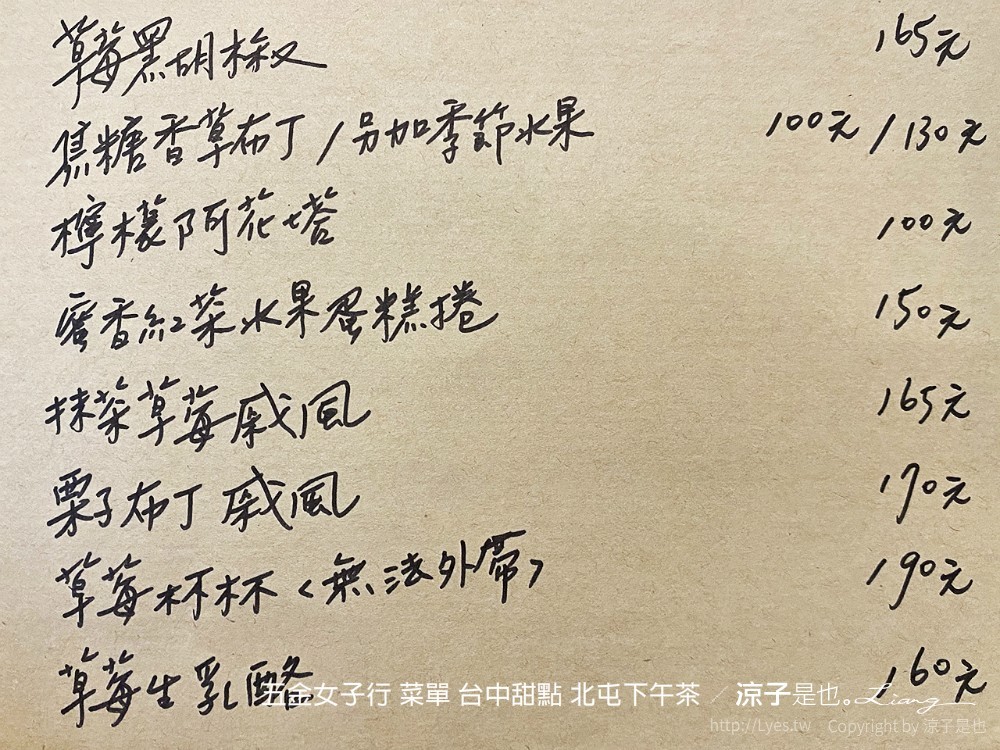 草莓黑胡椒 165元
焦糖香草布丁/另加季節水果 100元/130元
檸檬阿花塔 100元
蜜香紅茶水果蛋糕捲 150元
抹茶草莓戚風 165元
栗子布丁戚風 170元
草莓杯杯<無法外帶> 190元
草莓生乳酪 160元
五金女子行 菜單 台中甜點 北屯下午茶 / 涼子是也。Liang
http://Lyes.tw Copyright by 涼子是也